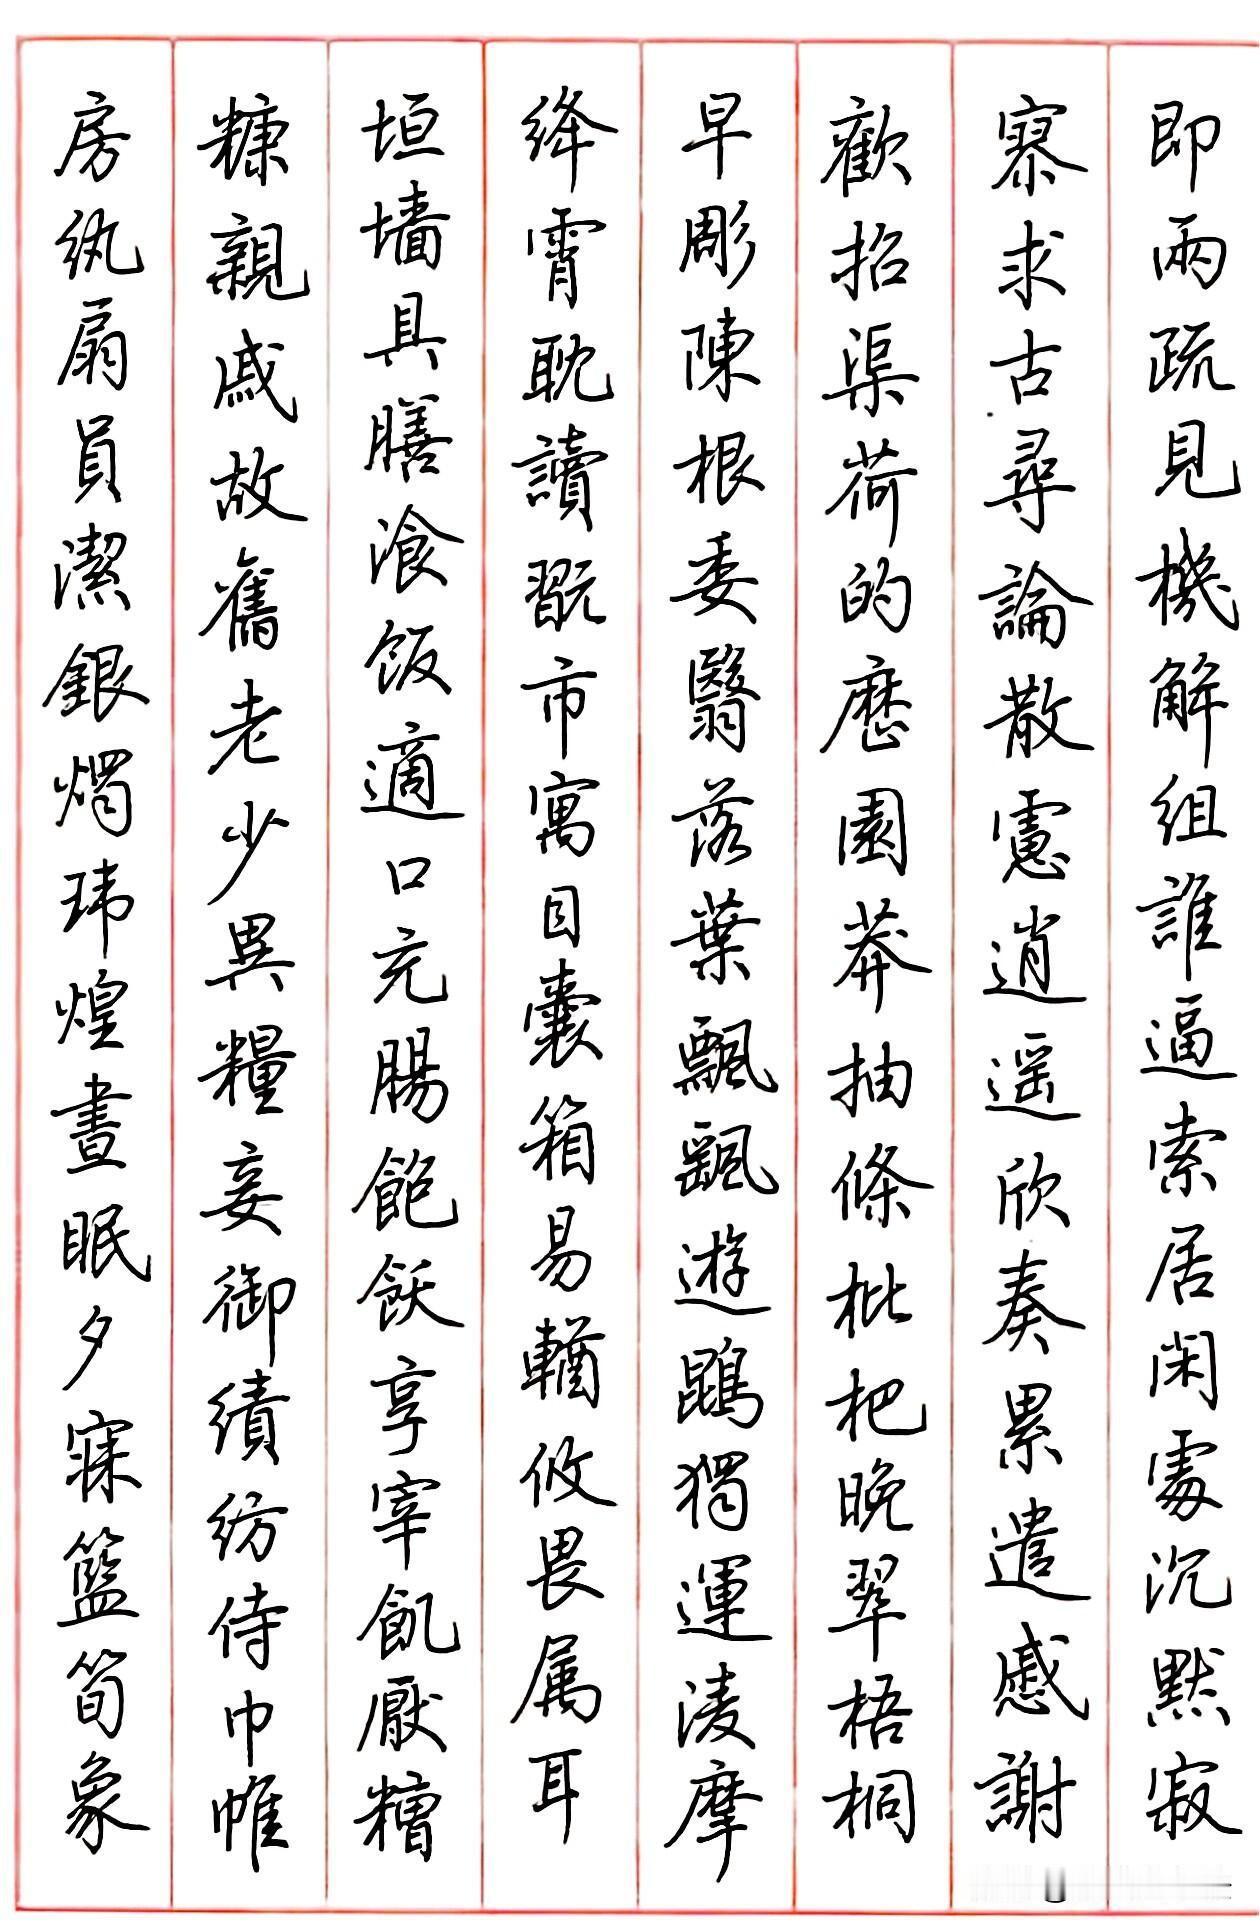 即兩疏見機解組誰逼索居閑處沉默寂
寮求古尋論散慮逍遥欣奏累遣慼謝
歡招渠荷的歷園莽抽條枇杷晚翠梧桐
早彫陳根委翳落葉飄飖遊鵾獨運凌摩
絳霄耽讀翫市寓目囊箱易輶攸畏属耳
垣墻具膳飡飯適口充腸飽飫享宰飢厭糟
糠親戚故舊老少異糧妾御績紡侍巾帷
房紈扇員潔銀燭玮煌晝眠夕寐籃筍象